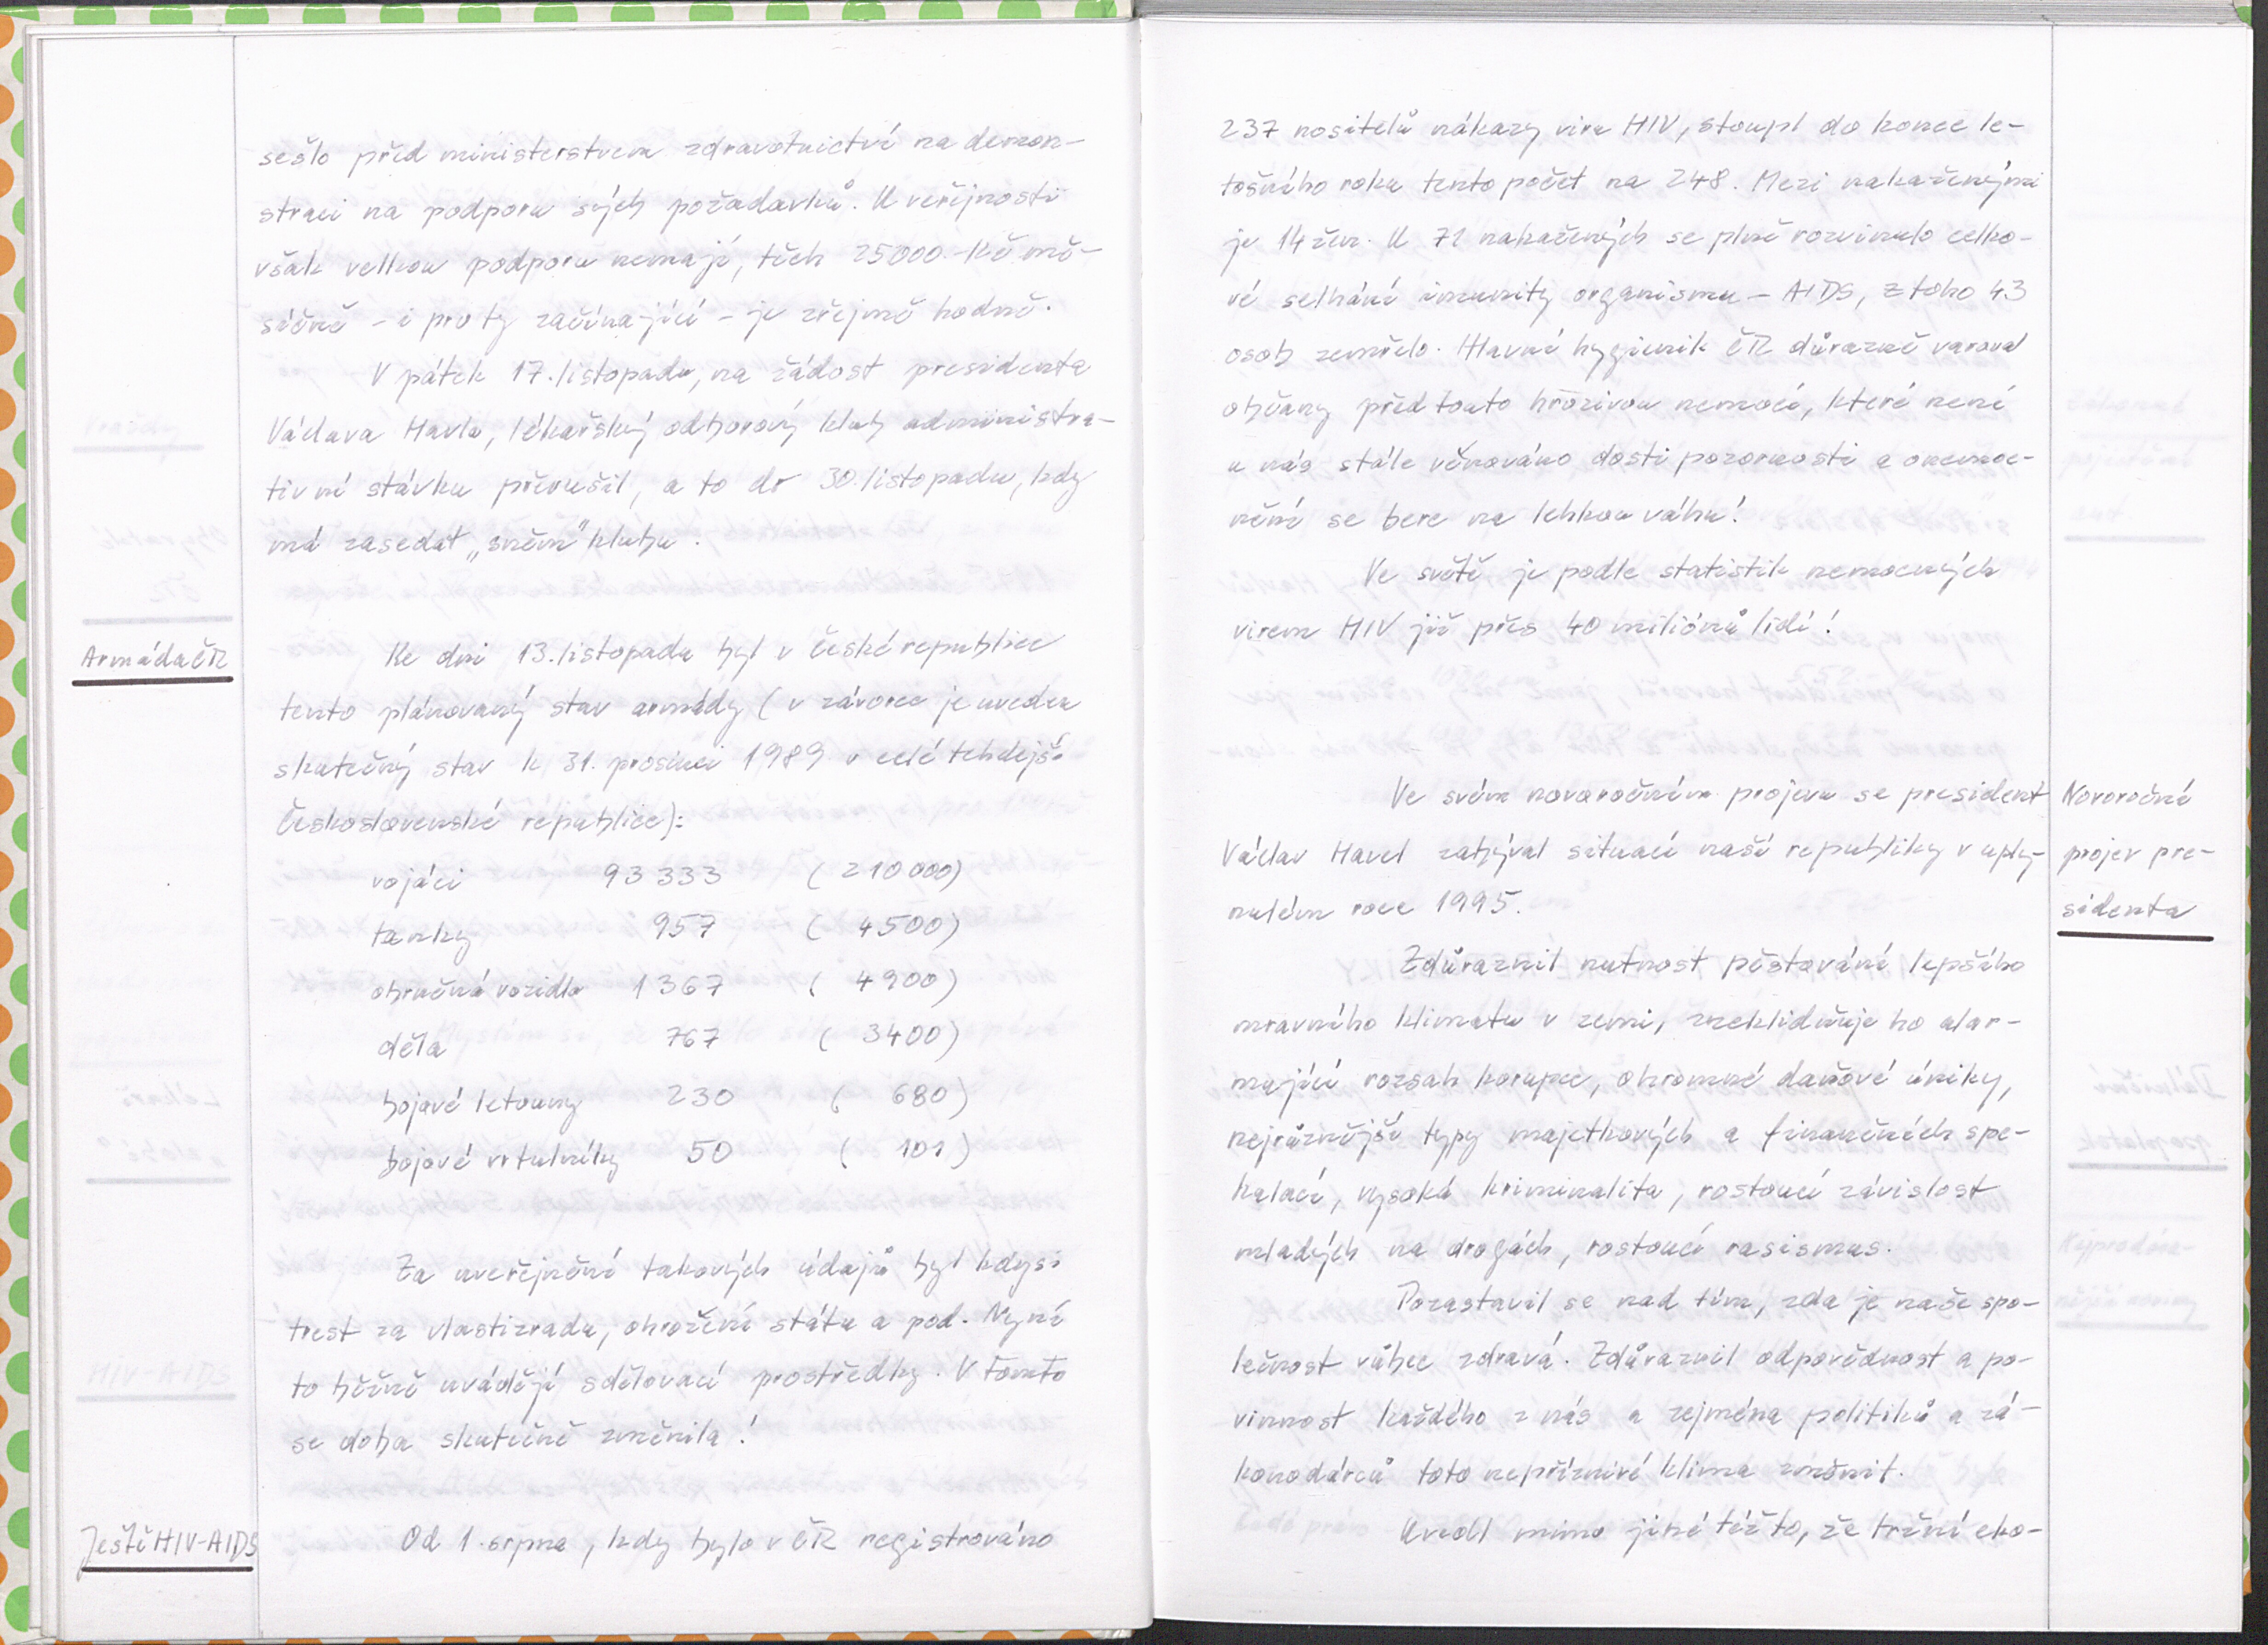 sešlo před ministerstvem zdravotnictví na demon-
straci na podporu svých požadavků. U veřejnosti
však velkou podporu nemají, těch 25 000.-Kč mě-
síčně - i pro ty začínající - je zřejmě hodně.
V pátek 17. listopadu, na žádost presidenta
Václava Havla, lékařský odborový klub administra-
tivní stávku přerušil, a to do 30. listopadu, kdy
má zasedat „sněm" klubu.
Armáda ČR
Ke dni 13. listopadu byl v České republice
tento plánovaný stav armády (v závorce je uveden
skutečný stav k 31. prosinci 1989 v celé tehdejší
Československé republice):
vojáci 93 333 ( 210 000)
tanky 957 ( 4 500)
obrněná vozidla 1 367 ( 4 900)
děla 767 ( 3 400)
bojové letouny 230 ( 680)
bojové vrtulníky 50 ( 101)
Za uveřejnění takových údajů byl kdysi
trest za vlastizradu, ohrožení státu a pod. Nyní
to běžně uvádějí sdělovací prostředky. V tomto
se doba skutečně změnila!
Ještě HIV-AIDS
Od 1. srpna, kdy bylo v ČR registrováno
237 nositelů nákazy viru HIV, stoupl do konce le-
tošního roku tento počet na 248. Mezi nakaženými
je 14 žen. U 72 nakažených se plně rozvinulo celko-
vé selhání imunity organismu - AIDS, z toho 43
osob zemřelo. Hlavní hygienik ČR důrazně varoval
občany před touto hrozivou nemocí, které není
u nás stále věnováno dosti pozornosti a onemoc-
nění se bere na lehkou váhu!
Ve světě je podle statistik nemocných
virem HIV již přes 40 miliónů lidí!
Novoroční
projev pre-
sidenta
Ve svém novoročním projevu se president
Václav Havel zabýval situací naší republiky v uply-
nulém roce 1995.
Zdůraznil nutnost pěstování lepšího
mravního klimatu v zemi, zneklidňuje ho alar-
mující rozsah korupce, ohromné daňové úniky,
nejrůznější typy majetkových a finančních spe-
kulací, vysoká kriminalita, rostoucí závislost
mladých na drogách, rostoucí rasismus.
Pozastavil se nad tím, zda je naše spo-
lečnost vůbec zdravá. Zdůraznil odpovědnost a po-
vinnost každého z nás a zejména politiků a zá-
konodárců toto nepříznivé klima změnit.
Uvedl mimo jiné též to, že tržní eko-